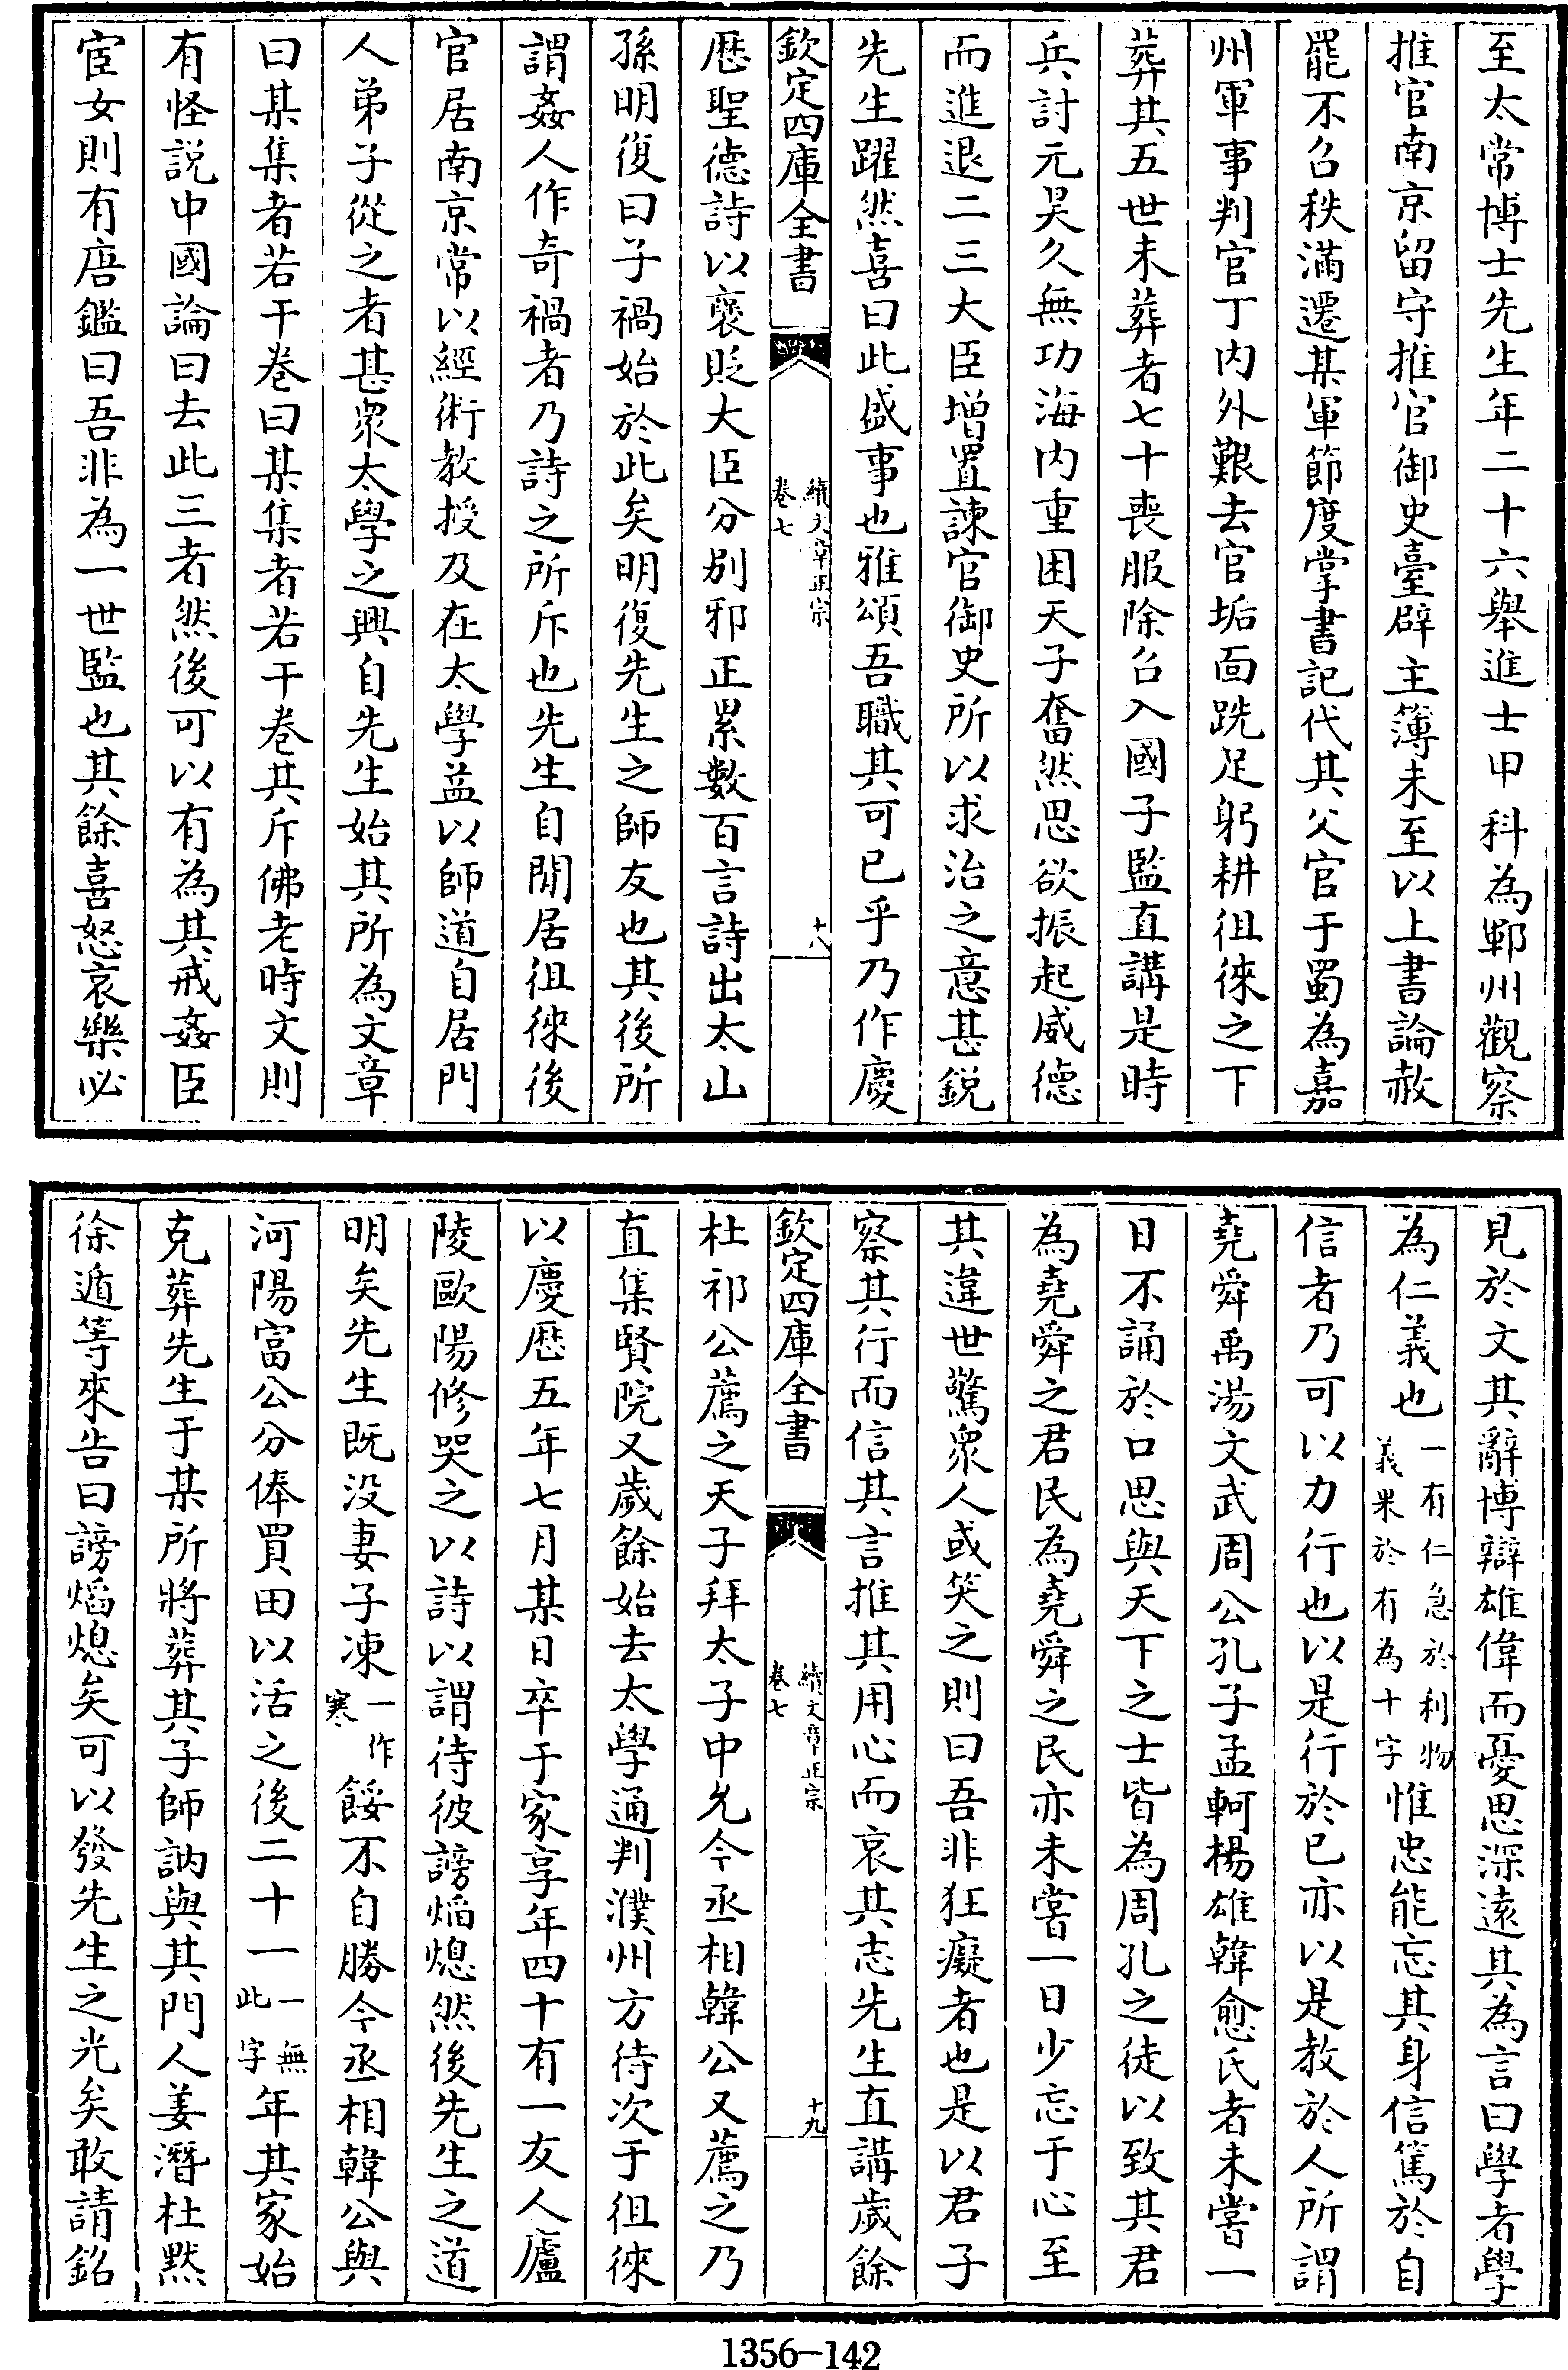 至太常博士先生年二十六舉進士甲科為鄆州觀察
推官南京留守推官御史臺辟主簿未至以上書論赦
罷不召秩滿遷某軍節度掌書記代其父官于蜀為嘉
州軍事判官丁内外艱去官垢面跣足躬耕徂徠之下
葬其五世未葬者七十喪服除召入國子監直講是時
兵討元昊久無功海内重困天子奮然思欲振起威德
而進退二三大臣增置諫官御史所以求治之意甚鋭
先生躍然喜曰此盛事也雅頌吾職其可已乎乃作慶
欽定四庫全書
續文章正宗
卷七
十八
厯聖德詩以襃貶大臣分别邪正累數百言詩出太山
孫明復曰子禍始於此矣明復先生之師友也其後所
謂姦人作奇禍者乃詩之所斥也先生自閒居徂徠後
官居南京常以經術教授及在太學益以師道自居門
人弟子從之者甚衆太學之興自先生始其所為文章
曰某集者若干卷曰某集者若干卷其斥佛老時文則
有怪説中國論曰去此三者然後可以有為其戒姦臣
宦女則有唐鑑曰吾非為一世監也其餘喜怒哀樂必
見於文其辭博辯雄偉而憂思深遠其為言曰學者學
為仁義也
一有仁急於利物
義果於有為十字
惟忠能忘其身信篤於自
信者乃可以力行也以是行於已亦以是教於人所謂
堯舜禹湯文武周公孔子孟軻楊雄韓愈氏者未嘗一
日不誦於口思與天下之士皆為周孔之徒以致其君
為堯舜之君民為堯舜之民亦未嘗一日少忘于心至
其違世驚衆人或笑之則曰吾非狂癡者也是以君子
察其行而信其言推其用心而哀其志先生直講歲餘
欽定四庫全書
續文章正宗
卷七
十九
杜祁公薦之天子拜太子中允今丞相韓公又薦之乃
直集賢院又歲餘始去太學通判濮州方待次于徂徠
以慶厯五年七月某日卒于家享年四十有一友人廬
陵歐陽修哭之以詩以謂待彼謗焰熄然後先生之道
明矣先生既没妻子凍
一作
寒
餒不自勝今丞相韓公與
河陽富公分俸買田以活之後二十一
一無
此字
年其家始
克葬先生于某所將葬其子師訥與其門人姜潛杜黙
徐遁等來告曰謗焰熄矣可以發先生之光矣敢請銘
1356-142